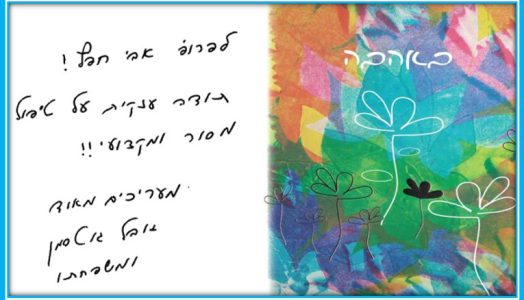 לפרופ' אבי חפץ!
תודה ענקית על טיפול
מסור ומקצועי!!
מעריכים מאוד
יובל גוטמן
ומשפחתו
באהבה